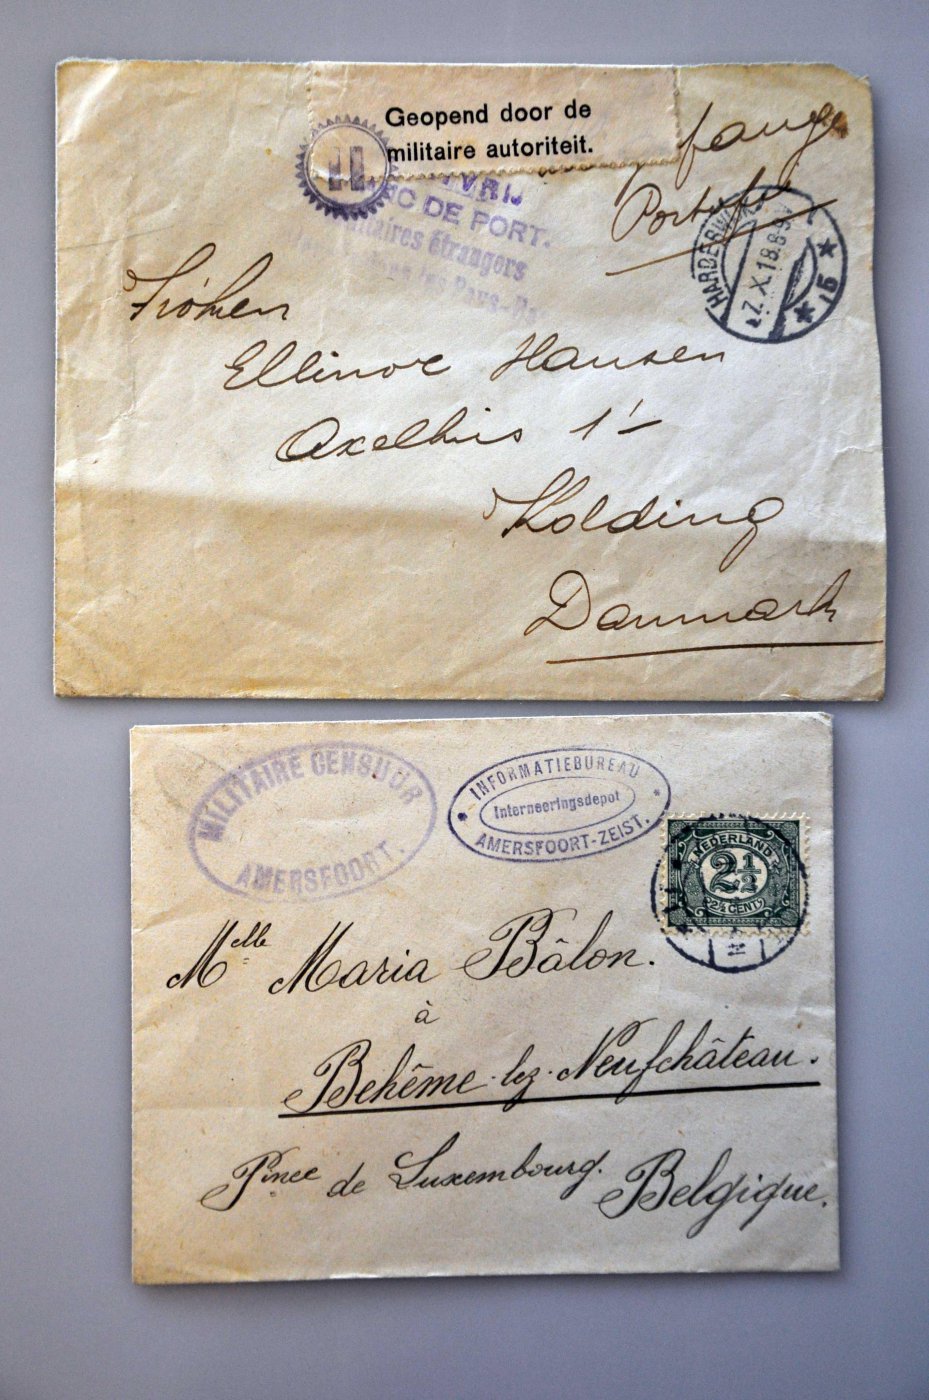 Geopend door de
militaire autoriteit.
H
VRIJ
DE PORT.
Militaires étrangers
les Pays-
fange
Portofri
HARDERWIJK
7.X.18.8-9
* 15 *
Frohen
Ellinor Hansen
Axelhus 1'-
Kolding
Danmark
MILITAIRE CENSUUR
AMERSFOORT.
INFORMATIEBUREAU
Interneeringsdepot
AMERSFOORT-ZEIST.
NEDERLAND
2½
2½ CENT
Melle Maria Bâlon.
à
Behême-lez-Neufchâteau.
Pince de Luxembourg.
Belgique.